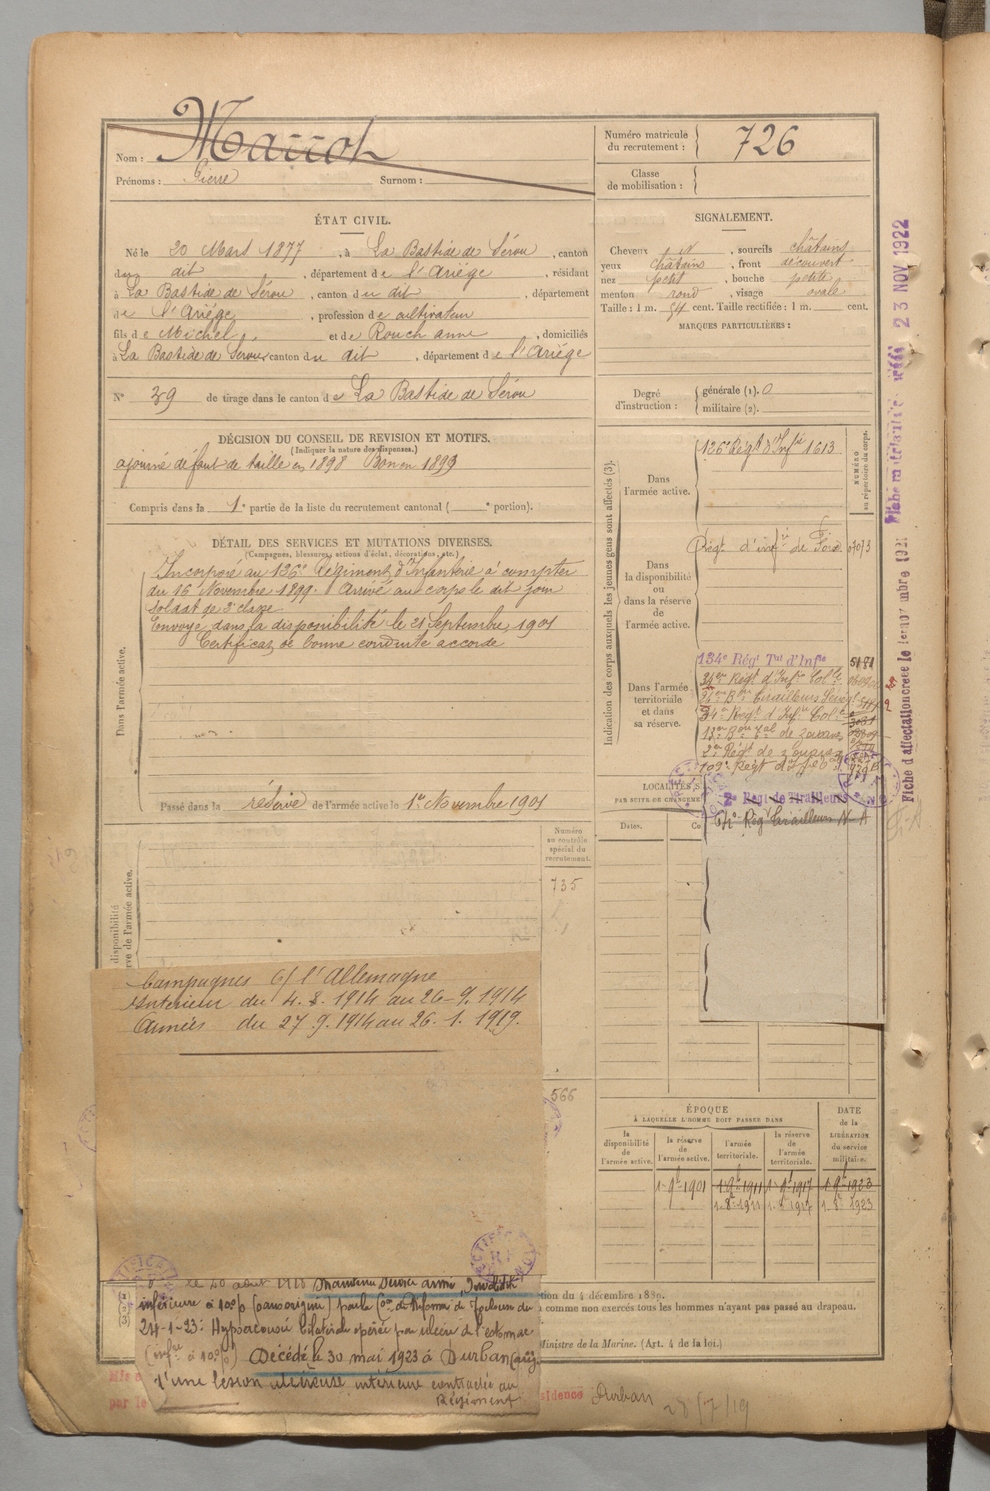 Nom : Marrot
Prénoms : Pierre Surnom :
Numéro matricule du recrutement : 726
Classe de mobilisation :
ÉTAT CIVIL.
Né le 20 Mars 1877, à La Bastide de Sérou, canton
dudit, département de l'Ariége, résidant
à La Bastide de Sérou, canton du dit, département
de l'Ariége, profession de cultivateur
fils de Michel, et de Rouch anne, domiciliés
à La Bastide de Serou canton du dit, département de l'Ariége
N° 39 de tirage dans le canton de La Bastide de Sérou
SIGNALEMENT.
Cheveux N, sourcils châtains
yeux châtain, front découvert
nez petit, bouche petite
menton rond, visage ovale
Taille : 1 m. 54 cent. Taille rectifiée : 1 m. cent.
MARQUES PARTICULIÈRES :
Degré d'instruction : générale (1). 0
militaire (2).
DÉCISION DU CONSEIL DE REVISION ET MOTIFS.
(Indiquer la nature des dispenses.)
ajourné défaut de taille en 1898 Bon en 1899
Compris dans la 1e partie de la liste du recrutement cantonal ( e portion).
DÉTAIL DES SERVICES ET MUTATIONS DIVERSES.
(Campagnes, blessures, actions d'éclat, décorations, etc.)
Dans l'armée active.
Incorporé au 126e Régiment d'Infanterie à compter
du 16 Novembre 1899. Arrivé au corps le dit jour
soldat de 2e classe
Envoyé dans la disponibilité le 21 Septembre 1901
Certificat de bonne conduite accordé
Passé dans la réserve de l'armée active le 1er Novembre 1901
Indication des corps auxquels les jeunes gens sont affectés (3).
NUMÉRO au répertoire du corps.
Dans l'armée active.
126e Régt d'Infie 1613
Dans la disponibilité ou dans la réserve de l'armée active.
Régt d'infie de Foix
Dans l'armée territoriale et dans sa réserve.
134e Régt Tal d'Infie 5181
34e Régt d'Infie Colle
34e Régt d'Infie Colle
13e Bon Tal de Zouaves
2e Régt de Zouaves
109e Régt d'Infie
2e Régt de Tirailleurs
Régt Tirailleurs N A
LOCALITÉS S
PAR SUITE DE CHANGEME
Dates.
Co
Numéro au contrôle spécial du recrutement.
735
566
disponibilité
rve de l'armée active.
Campagnes C/ l'Allemagne
Intérieur du 4.8.1914 au 26-9.1914
Armées du 27.9.1914 au 26.1.1919.
ÉPOQUE
À LAQUELLE L'HOMME DOIT PASSER DANS
la disponibilité de l'armée active.
la réserve de l'armée active.
l'armée territoriale.
la réserve de l'armée territoriale.
DATE de la LIBÉRATION du service militaire.
1-9e-1901 1-9e-1911 1-9e-1917 1-9e-1923
1-8e-1911 1-8e-1917 1-8e-1923
le 20 août 1918 Maintenu Service armé, Invalidité
inférieure à 10% (sans origine) par la Con de Réforme de Toulouse du
24-1-23: Hypoacousie bilatérale opérée pour ulcère de l'estomac
(infre à 10%) Décédé le 30 mai 1923 à Durban
d'une lésion ulcéreuse intérieure contractée au
Régiment
tion du 4 décembre 1889.
comme non exercés tous les hommes n'ayant pas passé au drapeau.
Ministre de la Marine. (Art. 4 de la loi.)
par le
sidence Durban 28/7/19
Fiche d'affectation créée le 1er novembre 1921
23 NOV 1922